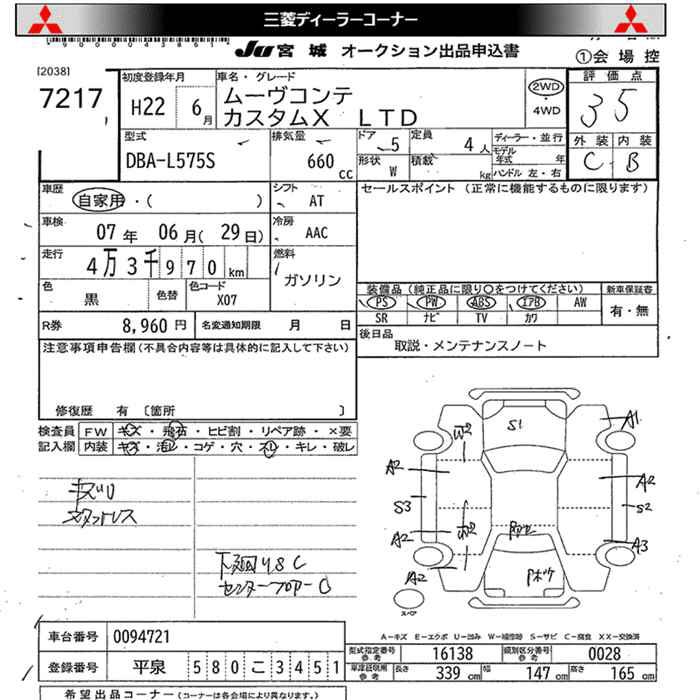 三菱ディーラーコーナー
JU 宮城 オークション出品申込書
①会場控
[2038]
7217
初度登録年月
H22 6月
車名・グレード
ムーヴコンテ
カスタムX LTD
2WD
・
4WD
評価点
3 5
外装 内装
C B
型式
DBA-L575S
排気量
660 cc
ドア
5
定員
4人
形状
W
積載
kg
ディーラー・並行
モデル
年式 年
ハンドル 左・右
車歴
自家用・( )
シフト
AT
セールスポイント (正常に機能するものに限ります)
車検
07年 06月(29日)
冷房
AAC
走行
4万3千970km
燃料
ガソリン
色
黒
色替
色コード
X07
装備品 (純正品に限り○をつけてください)
PS PW ABS エアB AW
SR ナビ TV カワ
新車保証書
有・無
R券 8,960円
名変通知期限 月 日
後日品
取説・メンテナンスノート
注意事項申告欄(不具合内容等は具体的に記入して下さい)
修復歴 有 〔箇所 〕
検査員
記入欄
FW キズ・飛石・ヒビ割・リペア跡・×要
内装 キズ・汚レ・コゲ・穴・スレ・キレ・破レ
キズU
スタッドレス
下廻りSC
センターフロアーC
S1
W2
A1
A2
A2
S3
S2
A2
W2
A3
A2
Pボケ
スペア
A-キズ E-エクボ U-凹み W-補修跡 S-サビ C-腐食 XX-交換済
車台番号 0094721
登録番号 平泉 580こ3451
型式指定番号
参考
16138
類別区分番号
参考
0028
車庫証明用
参考
長さ 339cm 幅 147cm 高さ 165cm
希望出品コーナー(コーナーは各会場により異なります。)